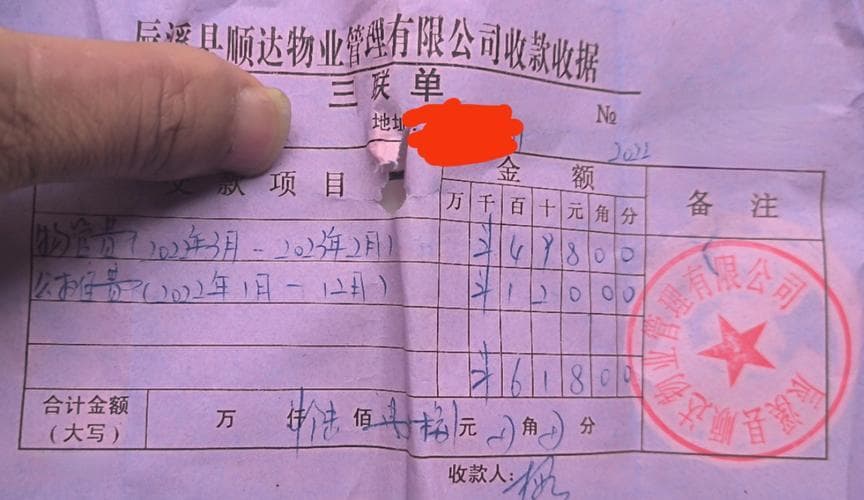 辰溪县顺达物业管理有限公司收款收据
三联单
地址: №
2022
款项目 金额 备注
万 千 百 十 元 角 分
物管费(2022年3月-2023年2月) ¥49800
(2022年1月-12月) ¥12000
¥61800
合计金额(大写) 万 仟 陆 佰 元 角 分
收款人:
辰溪县顺达物业管理有限公司